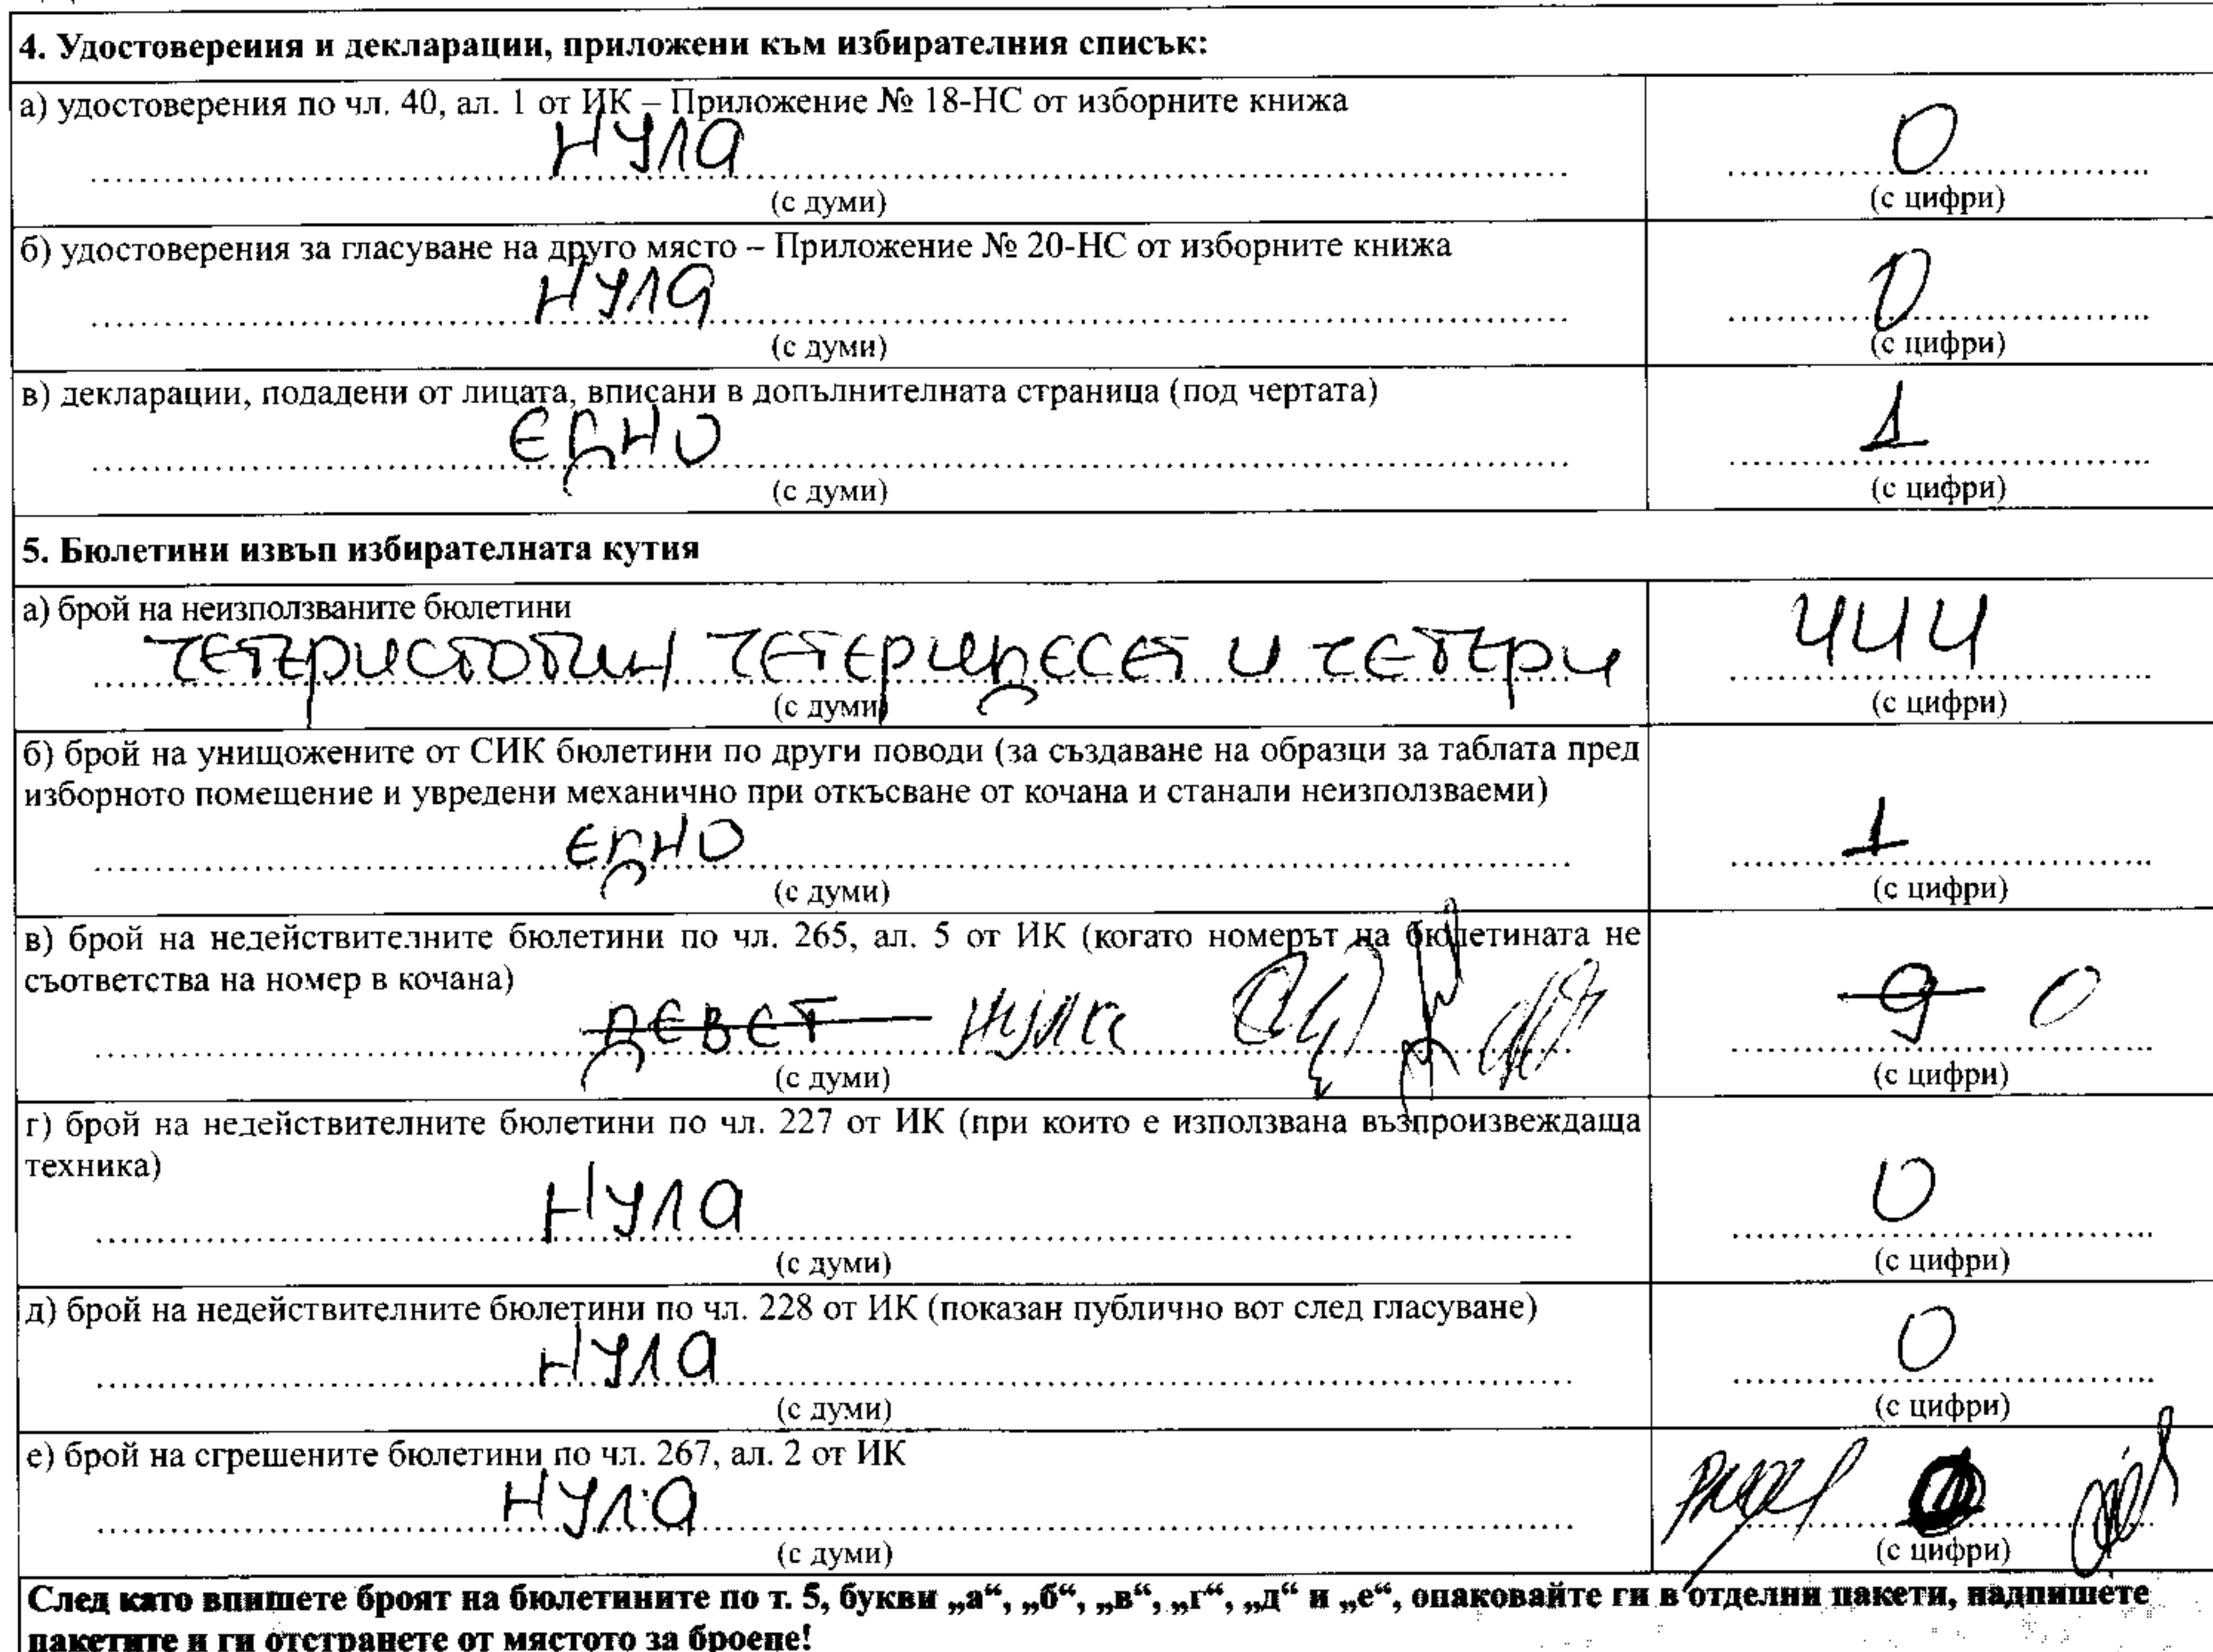 4. Удостоверения и декларации, приложени към избирателния списък:
а) удостоверения по чл. 40, ал. 1 от ИК – Приложение № 18-НС от изборните книжа
нула 0
(с думи) (с цифри)
б) удостоверения за гласуване на друго място – Приложение № 20-НС от изборните книжа
нула 0
(с думи) (с цифри)
в) декларации, подадени от лицата, вписани в допълнителната страница (под чертата)
ЕДНО 1
(с думи) (с цифри)
5. Бюлетини извън избирателната кутия
а) брой на неизползваните бюлетини
ЧЕТЕРИСТОТИН ЧЕТЕРИДЕСЕТ И ЧЕТЕРИ 444
(с думи) (с цифри)
б) брой на унищожените от СИК бюлетини по други поводи (за създаване на образци за таблата пред
изборното помещение и увредени механично при откъсване от кочана и станали неизползваеми)
ЕДНО 1
(с думи) (с цифри)
в) брой на недействителните бюлетини по чл. 265, ал. 5 от ИК (когато номерът на бюлетината не
съответства на номер в кочана)
ДЕВЕТ нула 9 0
(с думи) (с цифри)
г) брой на недействителните бюлетини по чл. 227 от ИК (при които е използвана възпроизвеждаща
техника)
нула 0
(с думи) (с цифри)
д) брой на недействителните бюлетини по чл. 228 от ИК (показан публично вот след гласуване)
нула 0
(с думи) (с цифри)
е) брой на сгрешените бюлетини по чл. 267, ал. 2 от ИК
нула
(с думи) (с цифри)
След като впишете броят на бюлетините по т. 5, букви „а“, „б“, „в“, „г“, „д“ и „е“, опаковайте ги в отделни пакети, надпишете
пакетите и ги отстранете от мястото за броене!